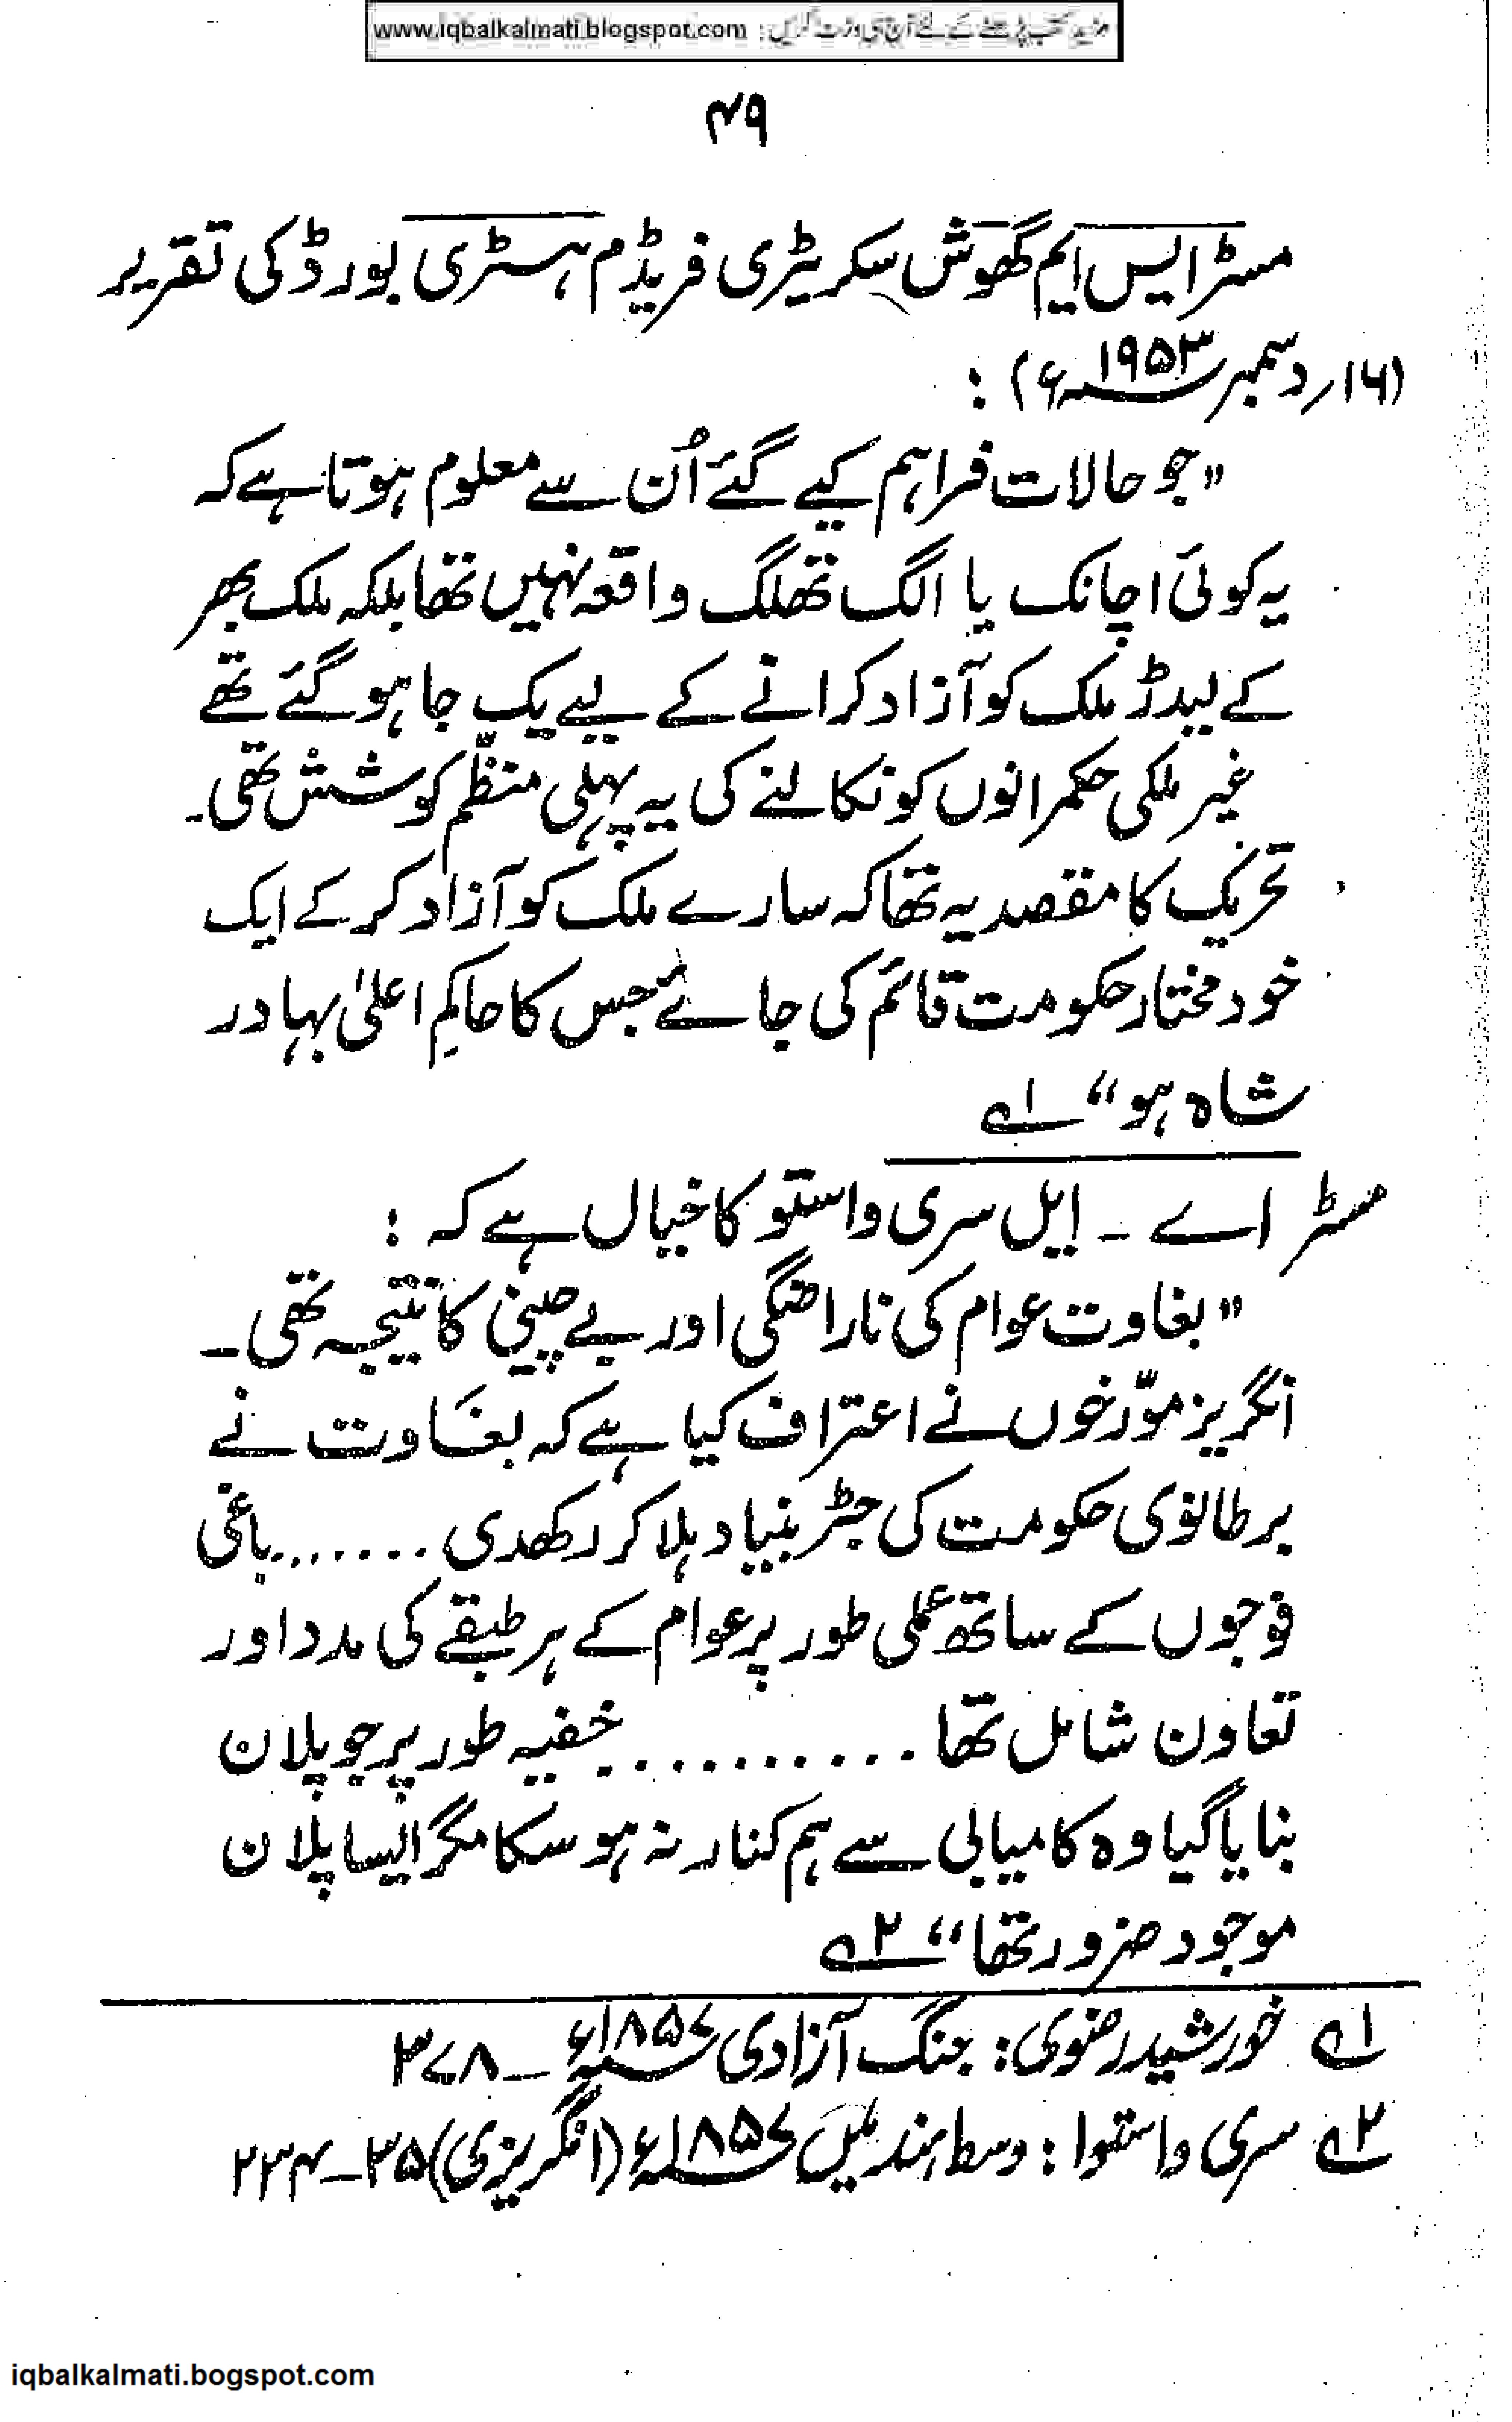 مزید کتب پڑھنے کے لئے آج ہی وزٹ کریں : www.iqbalkalmati.blogspot.com
۴۹
مسٹر ایس ایم گھوش سکریٹری فریڈم ہسٹری بورڈ کی تقریر
(۱۶؍ دسمبر ۱۹۵۳ء) :
"جو حالات فراہم کیے گئے اُن سے معلوم ہوتا ہے کہ
یہ کوئی اچانک یا الگ تھلگ واقعہ نہیں تھا بلکہ ملک بھر
کے لیڈر ملک کو آزاد کرانے کے لیے یک جا ہو گئے تھے
غیر ملکی حکمرانوں کو نکالنے کی یہ پہلی منظّم کوشش تھی۔
تحریک کا مقصد یہ تھا کہ سارے ملک کو آزاد کر کے ایک
خود مختار حکومت قائم کی جائے جس کا حاکمِ اعلیٰ بہادر
شاہ ہو" ۱ے
مسٹر اے ۔ ایل سری واستو کا خیال ہے کہ :
"بغاوت عوام کی ناراضگی اور بے چینی کا نتیجہ تھی۔
انگریز مؤرّخوں نے اعتراف کیا ہے کہ بغَاوت نے
برطانوی حکومت کی جڑ بنیاد ہلا کر رکھدی ....... باغی
فوجوں کے ساتھ عملی طور پر عوام کے ہر طبقے کی مدد اور
تعاون شامل تھا .......... خفیہ طور پر جو پلان
بنایا گیا وہ کامیابی سے ہم کنار نہ ہو سکا مگر ایسا پلان
موجود ضرور تھا" ۲ے
۱ے خورشید رضوی : جنگ آزادی ۱۸۵۷ء ۔ ۳۷۸
۲ے سری واستوا : وسط ہند میں ۱۸۵۷ء (انگریزی) ۳۵۔۲۳۴
iqbalkalmati.bogspot.com